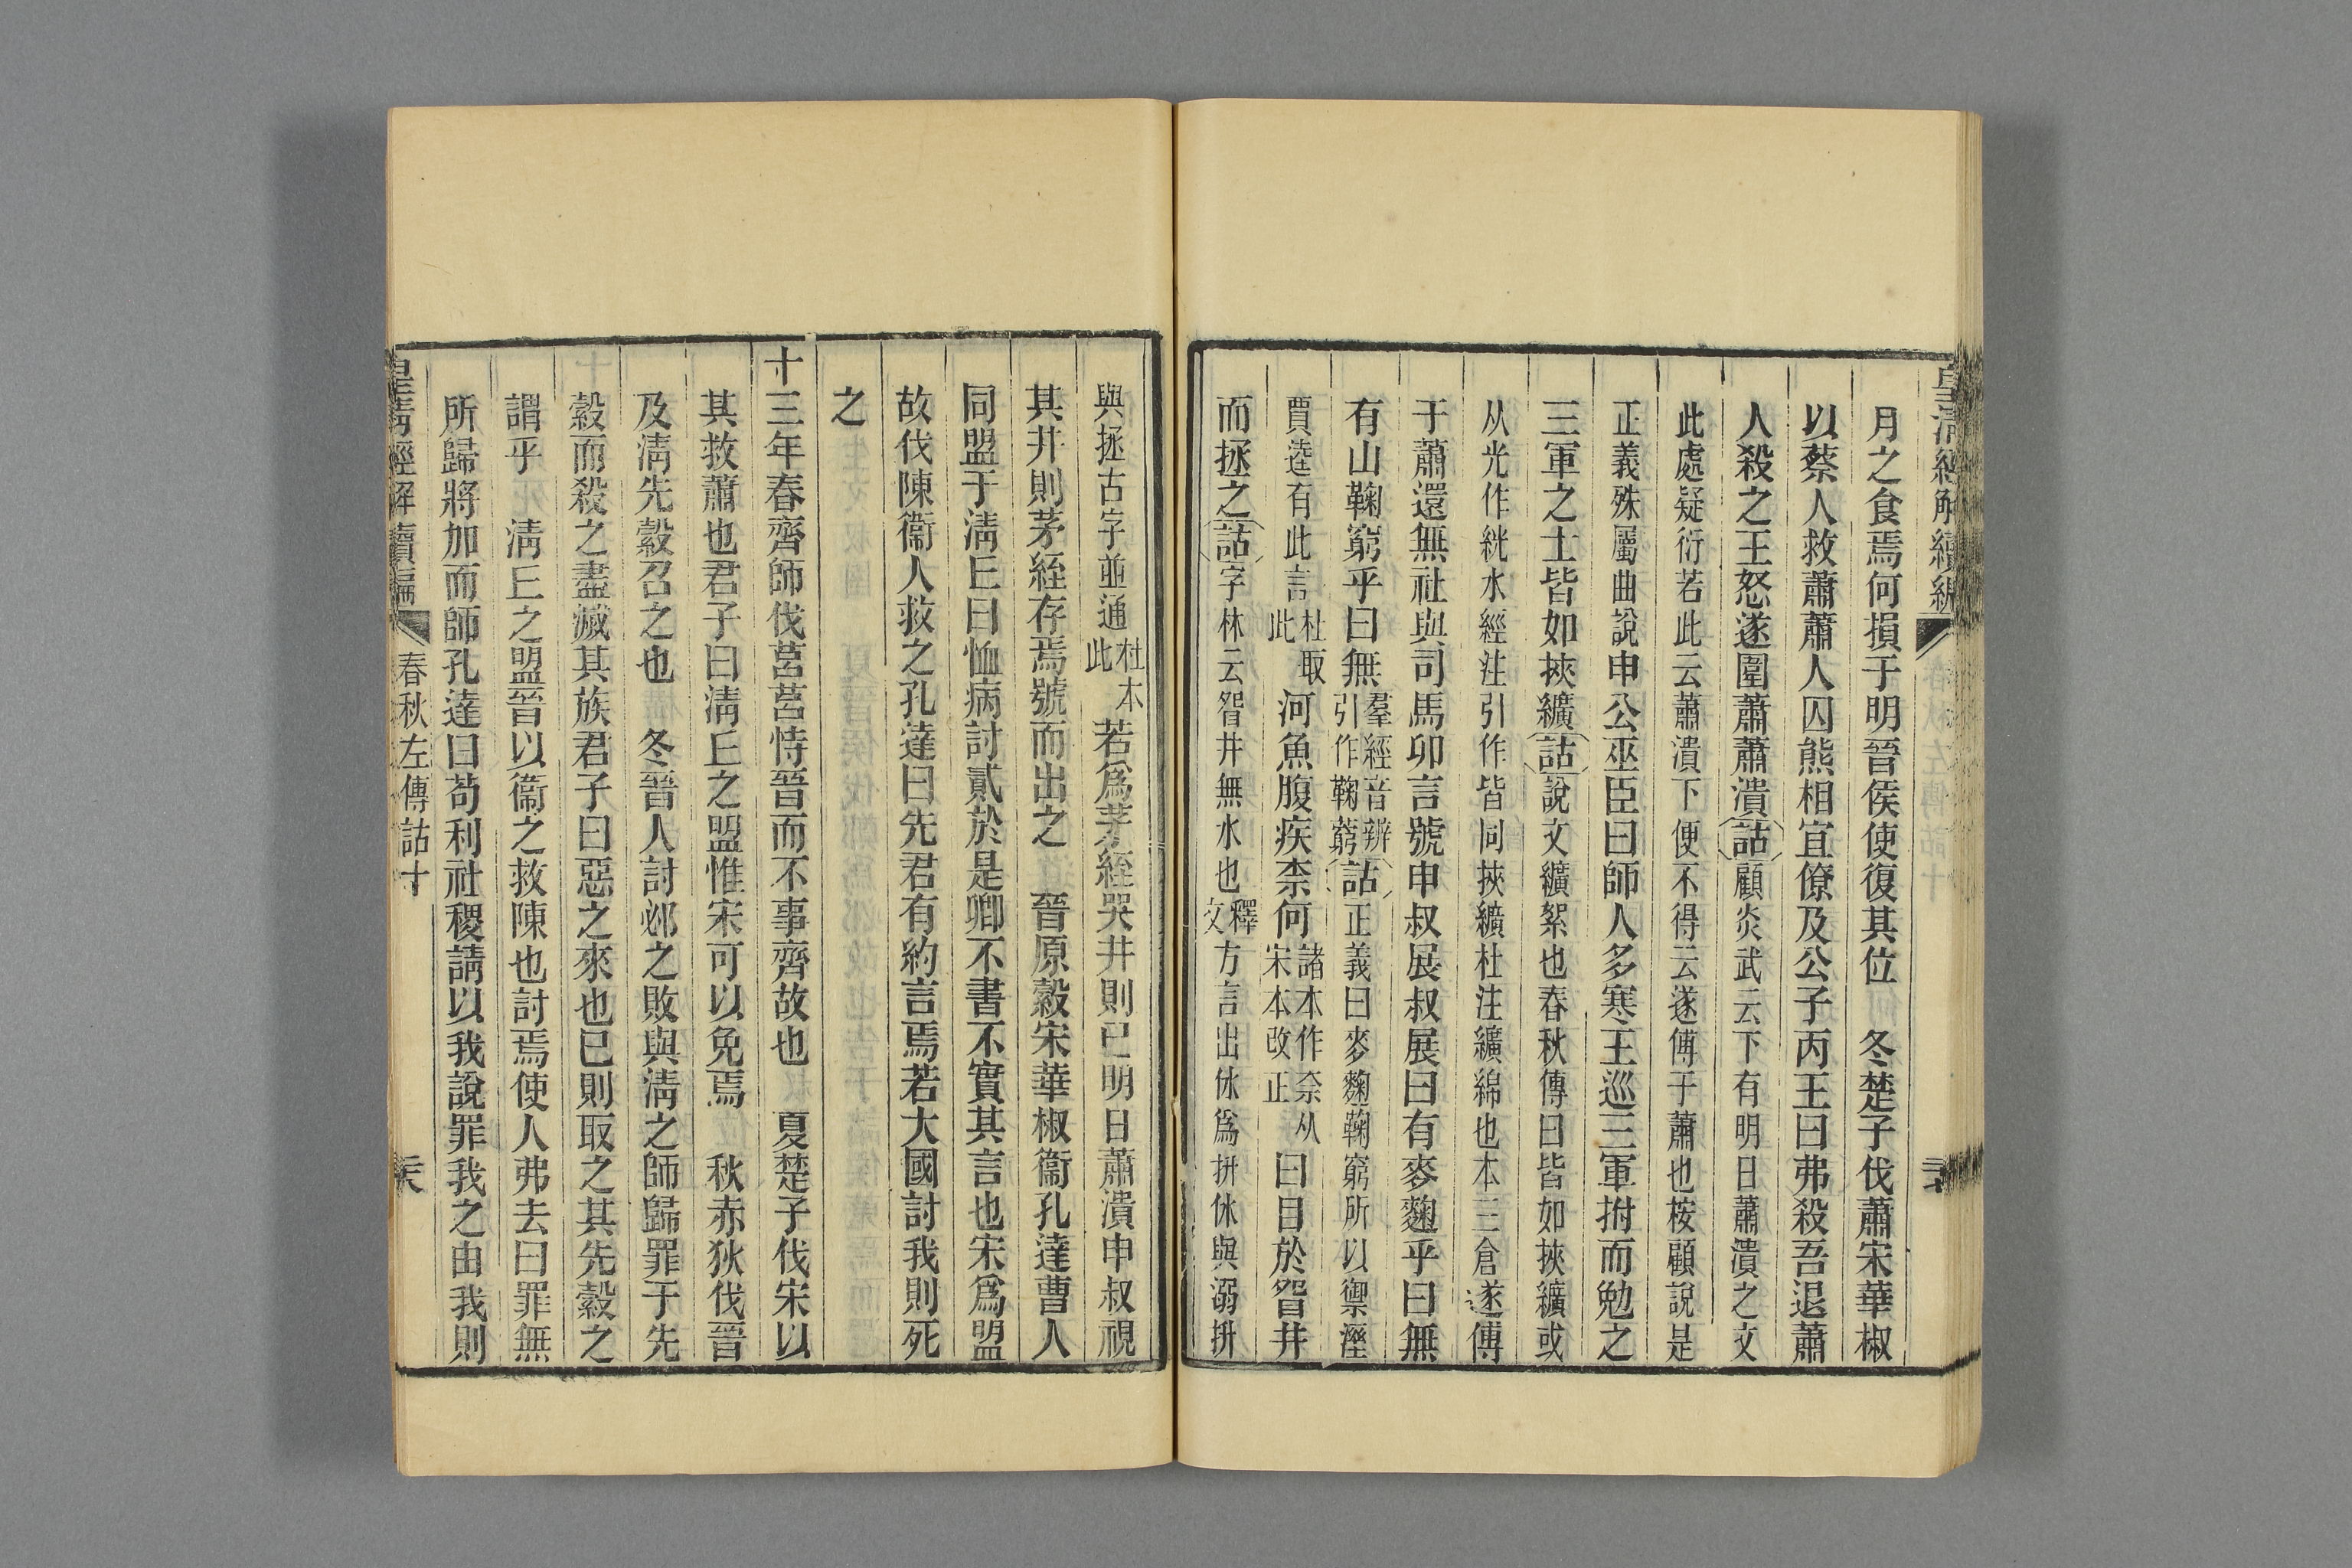 皇清經解續編
月之食焉何損于明晉侯使復其位　冬楚子伐蕭宋華椒
以蔡人救蕭蕭人囚熊相宜僚及公子丙王曰弗殺吾退蕭
人殺之王怒遂圍蕭蕭潰詁顧炎武云下有明日蕭潰之文
此處疑衍若此云蕭潰下便不得云遂傅于蕭也按顧說是
正義殊屬曲說申公巫臣曰師人多寒王巡三軍拊而勉之
三軍之士皆如挾纊詁說文纊絮也春秋傳曰皆如挾纊或
从光作絖水經注引作皆同挾纊杜注纊綿也本三倉遂傅
于蕭還無社與司馬卯言號申叔展叔展曰有麥麴乎曰無
有山鞠窮乎曰無羣經音辨引作鞠藭詁正義曰麥麴鞠窮所以禦溼
賈逵有此言杜取此河魚腹疾柰何諸本作奈从宋本改正曰目於眢井
而拯之詁字林云眢井無水也釋文方言出㳄爲抍㳄與溺抍
與拯古字並通杜本此若爲茅絰哭井則已明日蕭潰申叔視
其井則茅絰存焉號而出之　晉原縠宋華椒衞孔達曹人
同盟于淸丘曰恤病討貳於是卿不書不實其言也宋爲盟
故伐陳衞人救之孔達曰先君有約言焉若大國討我則死
之
十三年春齊師伐莒莒恃晉而不事齊故也　夏楚子伐宋以
其救蕭也君子曰淸丘之盟惟宋可以免焉　秋赤狄伐晉
及淸先縠召之也　冬晉人討邲之敗與淸之師歸罪于先
縠而殺之盡滅其族君子曰惡之來也已則取之其先縠之
謂乎　淸丘之盟晉以衞之救陳也討焉使人弗去曰罪無
所歸將加而師孔達曰苟利社稷請以我說罪我之由我則
皇淸經解續編　春秋左傳詁十　二六